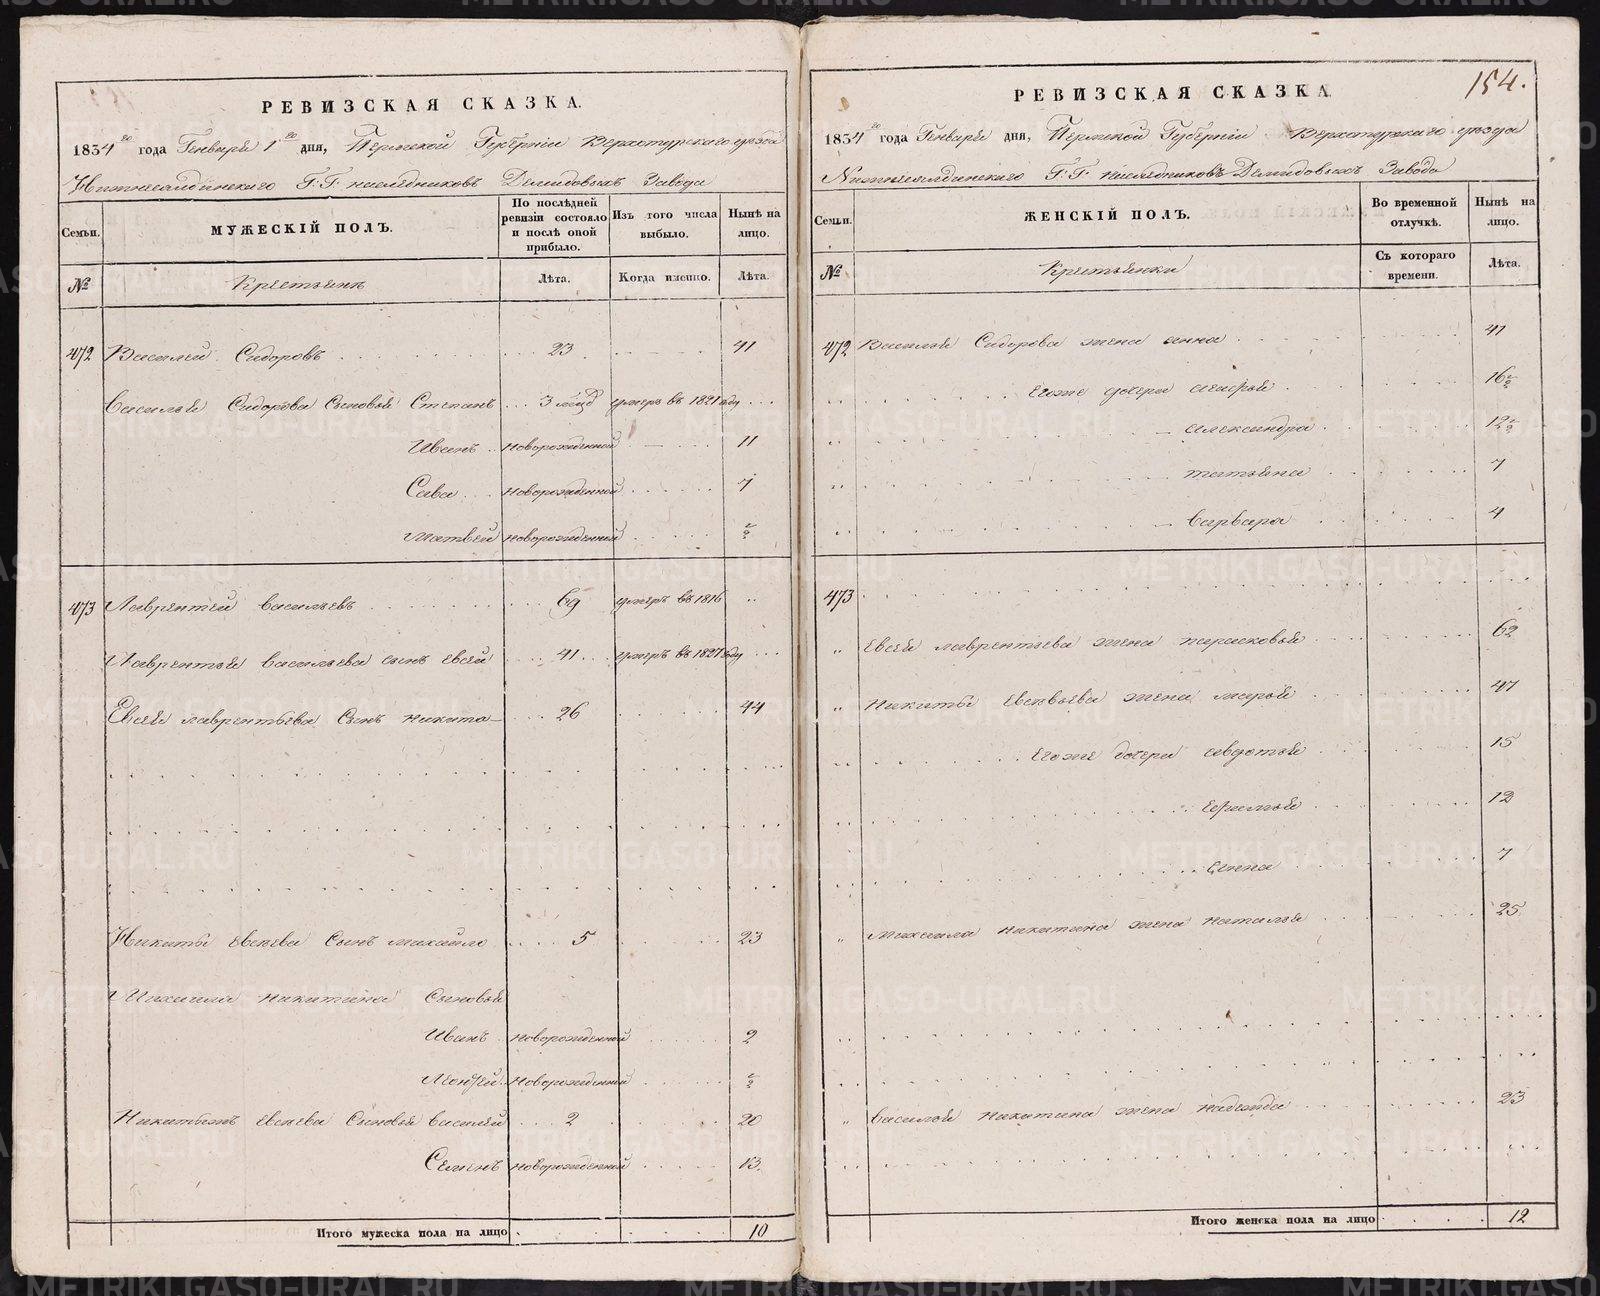 РЕВИЗСКАЯ СКАЗКА.
1834го года Генваря 1го дня, Пермской Губерніи Верхотурскаго уезда
Г.Г. наследниковъ Демидовыхъ Завода
Семьи.
МУЖЕСКІЙ ПОЛЪ.
По послѣдней ревизіи состояло и послѣ оной прибыло.
Изъ того числа выбыло.
Нынѣ на лицо.
№
Крестьянъ
Лѣта.
Когда именно.
Лѣта.
472 Василей Сидоровъ 23 41
Василья Сидорова Сыновья Степанъ 3 умеръ въ 1821 году
Иванъ новорожденной 11
Сава новорожденной 7
Матвей новорожденной ½
473 Лаврентей васильевъ 69 умеръ въ 1816
Лаврентья васильева сынъ евсей 41 умеръ въ 1827 году
Евсея лаврентьева Сынъ никита 26 44
Никиты евсеева Сынъ михайло 5 23
Михаила никитина Сыновья
Иванъ новорожденной 2
новорожденной ½
евсеева Сыновья василей 2 20
Семенъ новорожденной 13.
Итого мужеска пола на лицо 10
154.
РЕВИЗСКАЯ СКАЗКА
1834го года Генваря дня, Пермской Губерніи Верхотурскаго уезда
Г.Г. наследниковъ Демидовыхъ Завода
Семьи.
ЖЕНСКІЙ ПОЛЪ.
Во временной отлучкѣ.
Нынѣ на лицо.
№
Крестьянки
Съ котораго времени.
Лѣта.
472 Василья Сидорова жена анна 41
Егоже дочери 16½
александра 12½
татьяна 7
варвара 4
473
Евсея лаврентьева жена парасковья 62
Никиты жена марья 47
Егоже дочери авдотья 15
12
анна 7
михаила никитина жена наталья 25
василья никитина жена надежда 23
Итого женска пола на лицо 12
METRIKI.GASO-URAL.RU